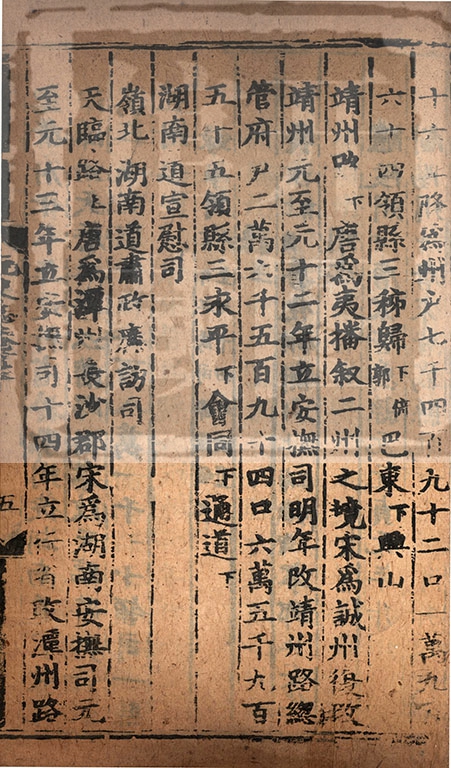 十六年降爲州戶七千四百九十二口一萬九
六十四領縣三秭歸下倚郭巴東下興山
靖州路下唐爲夷播叙二州之境宋爲誠州復改
靖州元至元十二年立安撫司明年改靖州路緫
管府戶二萬六千五百九十四口六萬五千九百
五十五領縣三永平下會同下通道下
湖南道宣慰司
嶺北湖南道肅政廉訪司
天臨路上唐爲潭州長沙郡宋爲湖南安撫司元
至元十三年立安撫司十四年立行省改潭州路
五